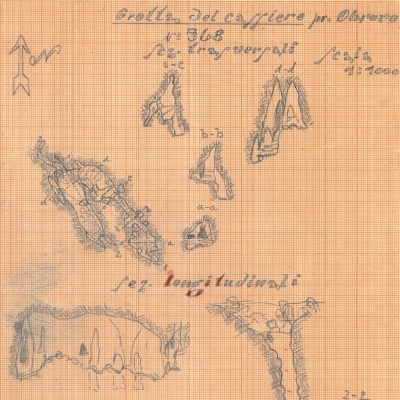 Grotta del cassiere pr. Obrovo
N° 368
sez. trasversali
Scala
1:1000
c-c
d-d
b-b
a-a
sez. longitudinali
2-2